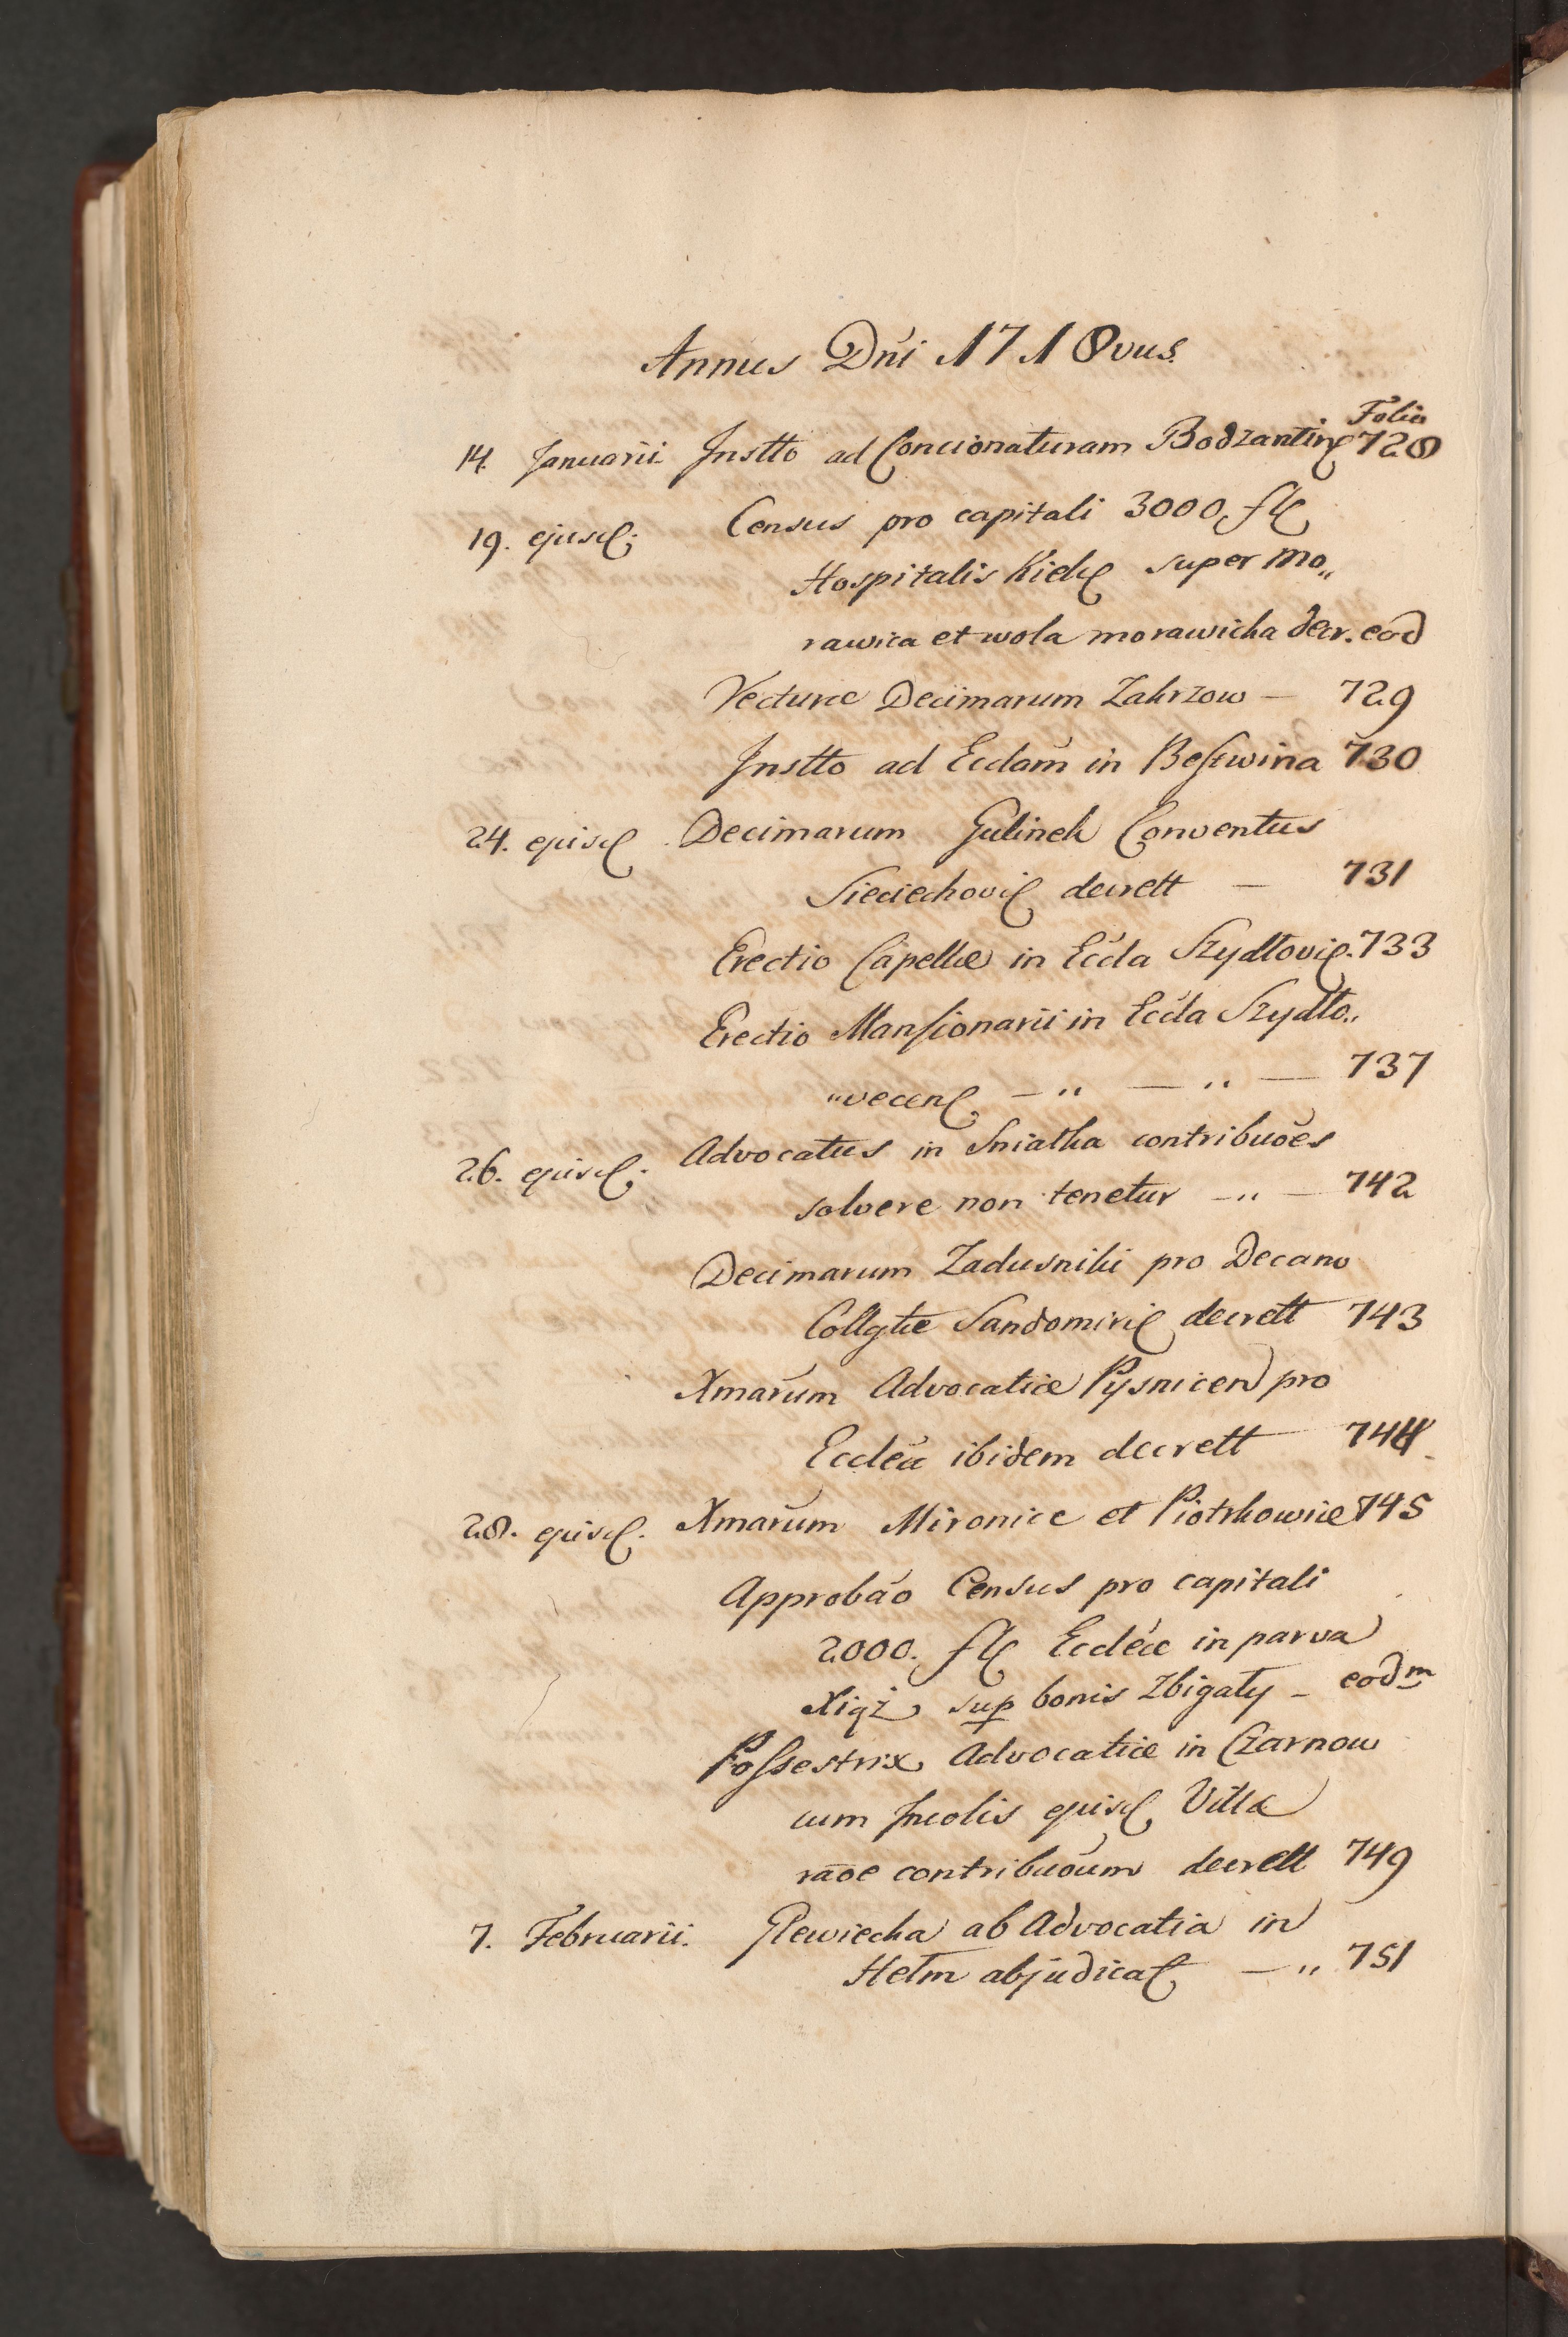 Annus Dni 1718vus.
Folia
14. Januarii Instto ad Concionaturam Bodzantin 728
19. ejusd; Census pro capitali 3000. fl
Hospitalis Kielc super Mo„
rawica et wola morawicka decr. eod
Vecturæ Decimarum Zakrzow — 729
Instto ad Ecclam in Bestwina 730
24. ejusd Decimarum Gulinek Conventus
Sieciechovi decrett — 731
Erectio Capellæ in Eccla Szydlovi. 733
Erectio Mansionarii in Eccla Szydlo„
„vecen — „ — „ — 737
26. ejusd; Advocatus in Sniatka contribuões
solvere non tenetur — „ — 742
Decimarum Zadusniki pro Decano
Collgtæ Sandomiri decrett 743
Xmarum Advocatiæ Pysnicen pro
Ecclea ibidem decrett 744
28. ejusd. Xmarum Mironice et Piotrkowice 745
Approbao Census pro capitali
2000. fl Eccleæ in parva
Xiąż sup bonis Zbigaly — eodm
Possestrix Advocatiæ in Czarnow
cum Incolis ejusd Villæ
raoe contribuoum decrett 749
7. Februarii. Glewiecka ab Advocatia in
Hetm abjudicat — „ 751